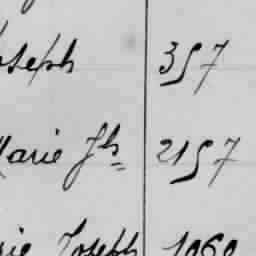 oseph 357
Marie Jh 2157
rie Joseph 1060